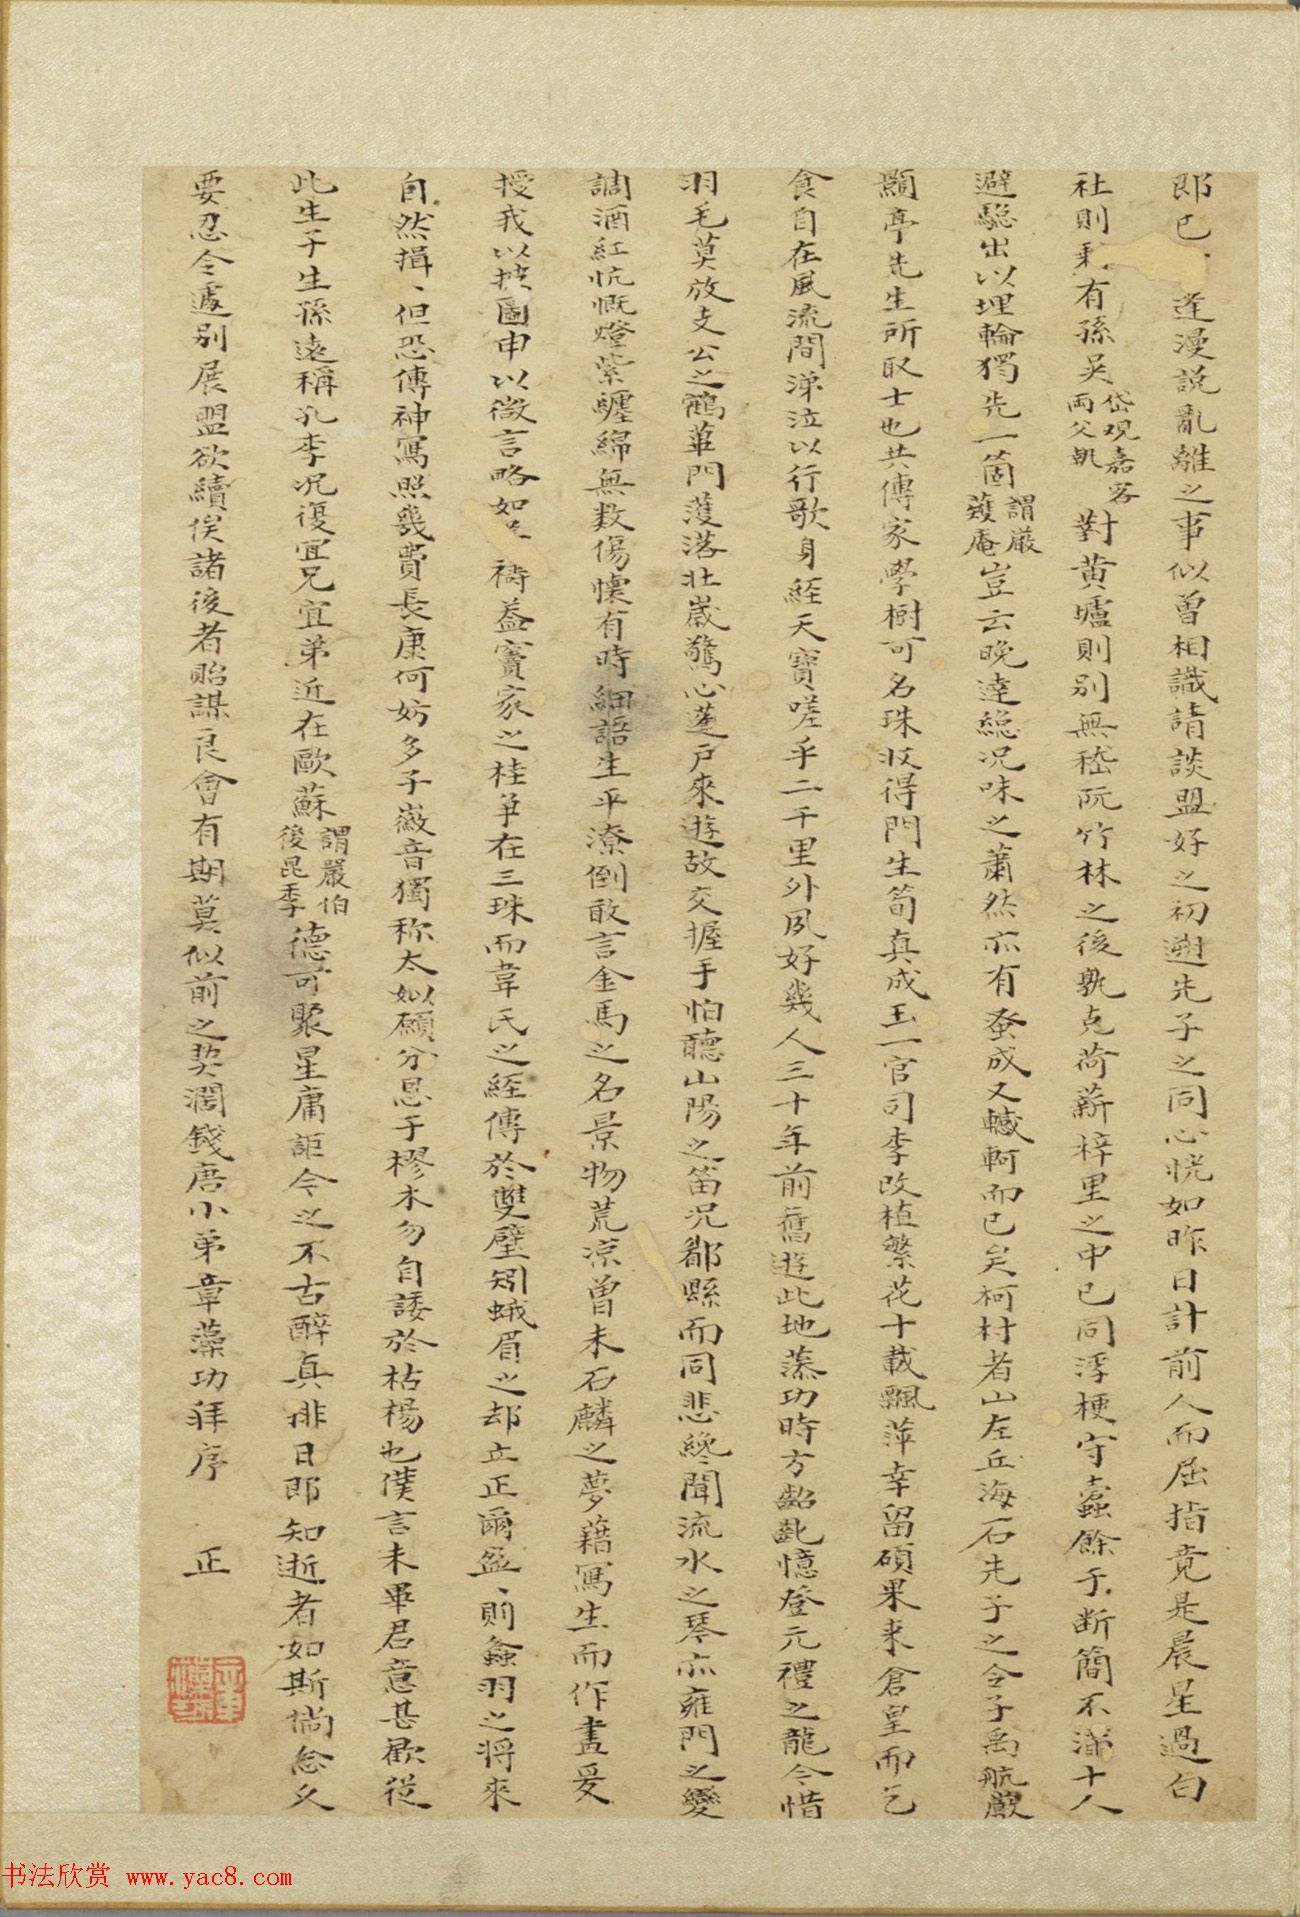 郎已逢漫說亂離之事似曾相識請談盟好之初遡先子之同心恍如昨日計前人而屈指竟是晨星過白
社則剩有孫吳岱觀嘉客兩父執對黃壚則別無嵇阮竹林之後孰克荷薪梓里之中已同浮梗守蠹餘于斷簡不滿十人
避驄出以埋輪獨先一箇謂嚴䕶庵豈云晚達總況味之蕭然亦有蚤成又轗軻而已矣柯村者山左丘海石先子之令子禹航嚴
顥亭先生所取士也共傳家學樹可名珠收得門生筍真成玉一官司李改植繁花十載飄萍幸留碩果來倉皇而乞
食自在風流間涕泣以行歌身經天寶嗟乎二千里外夙好幾人三十年前舊遊此地藻功時方齠齔憶登元禮之龍今惜
羽毛莫放支公之鶴篳門濩落壯歲驚心蓬戶來遊故交握手怕聽山陽之笛況鄰縣而同悲纔聞流水之琴亦雍門之變
調酒紅忼慨燈紫纏綿無數傷懷有時細語生平潦倒敢言金馬之名景物荒涼曾未石麟之夢藉寫生而作畫爰
授我以披圖申以微言略如禱蓋竇家之桂爭在三珠而韋氏之經傳於雙璧矧蛾眉之却立正爾盈、則螽羽之將來
自然揖、但恐傳神寫照幾費長康何妨多子徽音獨称太姒願分恩于樛木勿自諉於枯楊也僕言未畢君意甚歡從
此生子生孫遠稱孔李況復宜兄宜弟近在歐蘇謂嚴伯後昆季德可聚星庸詎今之不古醉真排日即知逝者如斯尚念久
要忍令遽別展盟欲續俟諸後者貽謀良會有期莫似前之契濶錢唐小弟章藻功拜序　正
书法欣赏 www.yac8.com